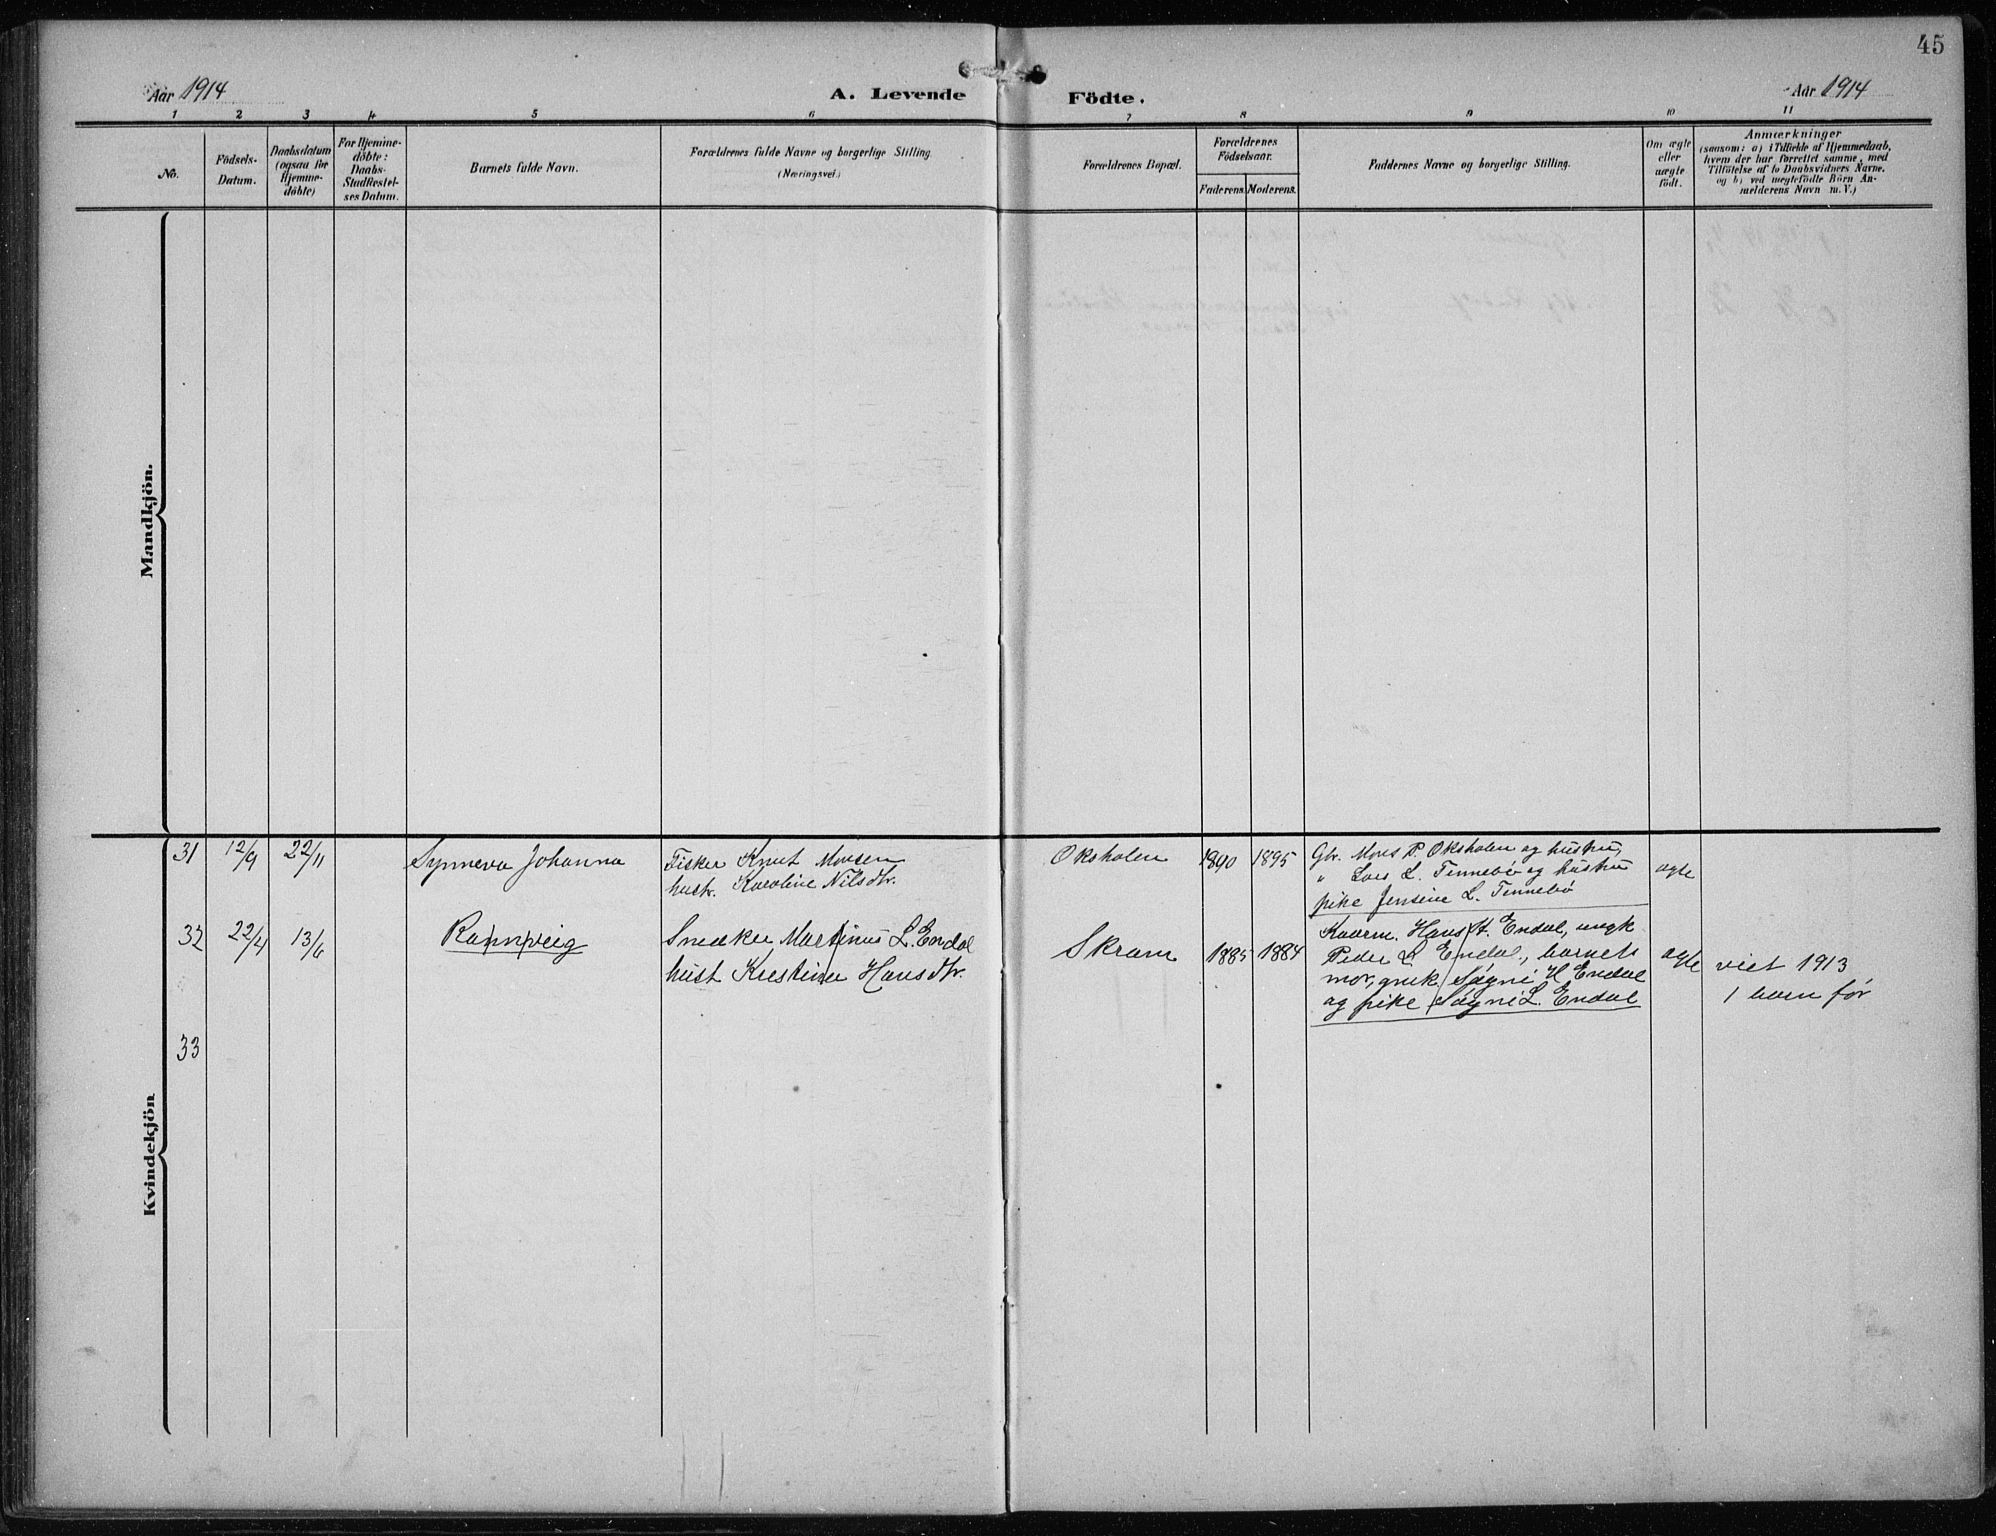 45
Aar 1914
A. Levende Födte.
Aar 1914
1 2 3 4 5 6 7 8 9 10 11
No.
Födsels-
Datum.
Daabsdatum
(ogsaa for
Hjemme-
döbte)
For Hjemme-
döbte:
Daabs-
Stadfæstel-
ses Datum.
Barnets fulde Navn.
Forældrenes fulde Navne og borgerlige Stilling
(Næringsvei.)
Forældrenes Bopæl.
Forældrenes
Födselsaar.
Faderens. Moderens.
Faddernes Navne og borgerlige Stilling.
Om ægte
eller
uægte
født.
Anmærkninger
(saasom: a) i Tilfælde af Hjemmedaab,
hvem der har forrettet samme, med
Tilföielse af to Daabsvidners Navne,
og b) ved uægtefödte Börn An-
melderens Navn m. V.)
Mandkjön.
Kvindekjön
31 12/9 22/11 Synneva Johanna
Fisker Knut Monsen
hustr. Karoline Nilsdtr.
Oksholen 1890 1895
Gbr. Mons P. Oksholen og hustru,
" Lars L. Tennebö og hustru
pike Jensine L. Tennebö
ægte
32 22/4 13/6 Rannveig
Snedker Martinus L. Endal
hust Krestine Hansdtr.
Skram 1885 1884
Kaarm. Hans H. Endal, ungk
Peder L Endal, barnets
mor, gmk. Søgni H Endal
og pike Søgni L. Endal
ægte viet 1913
1 barn før
33